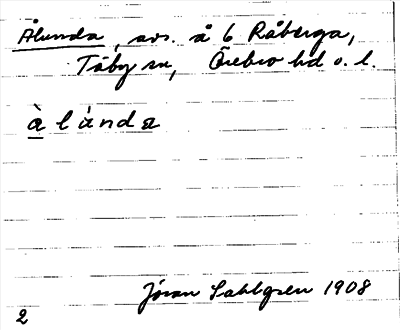 Ålunda, avs. å 6 Råberga,
Täby sn, Örebro hd o. l.
à l ànda
Jöran Sahlgren 1908
2